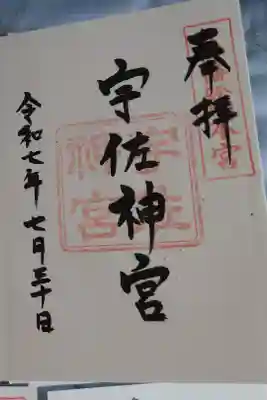 奉拝
宇佐神宮
令和七年 七月三十日
宇佐
神宮